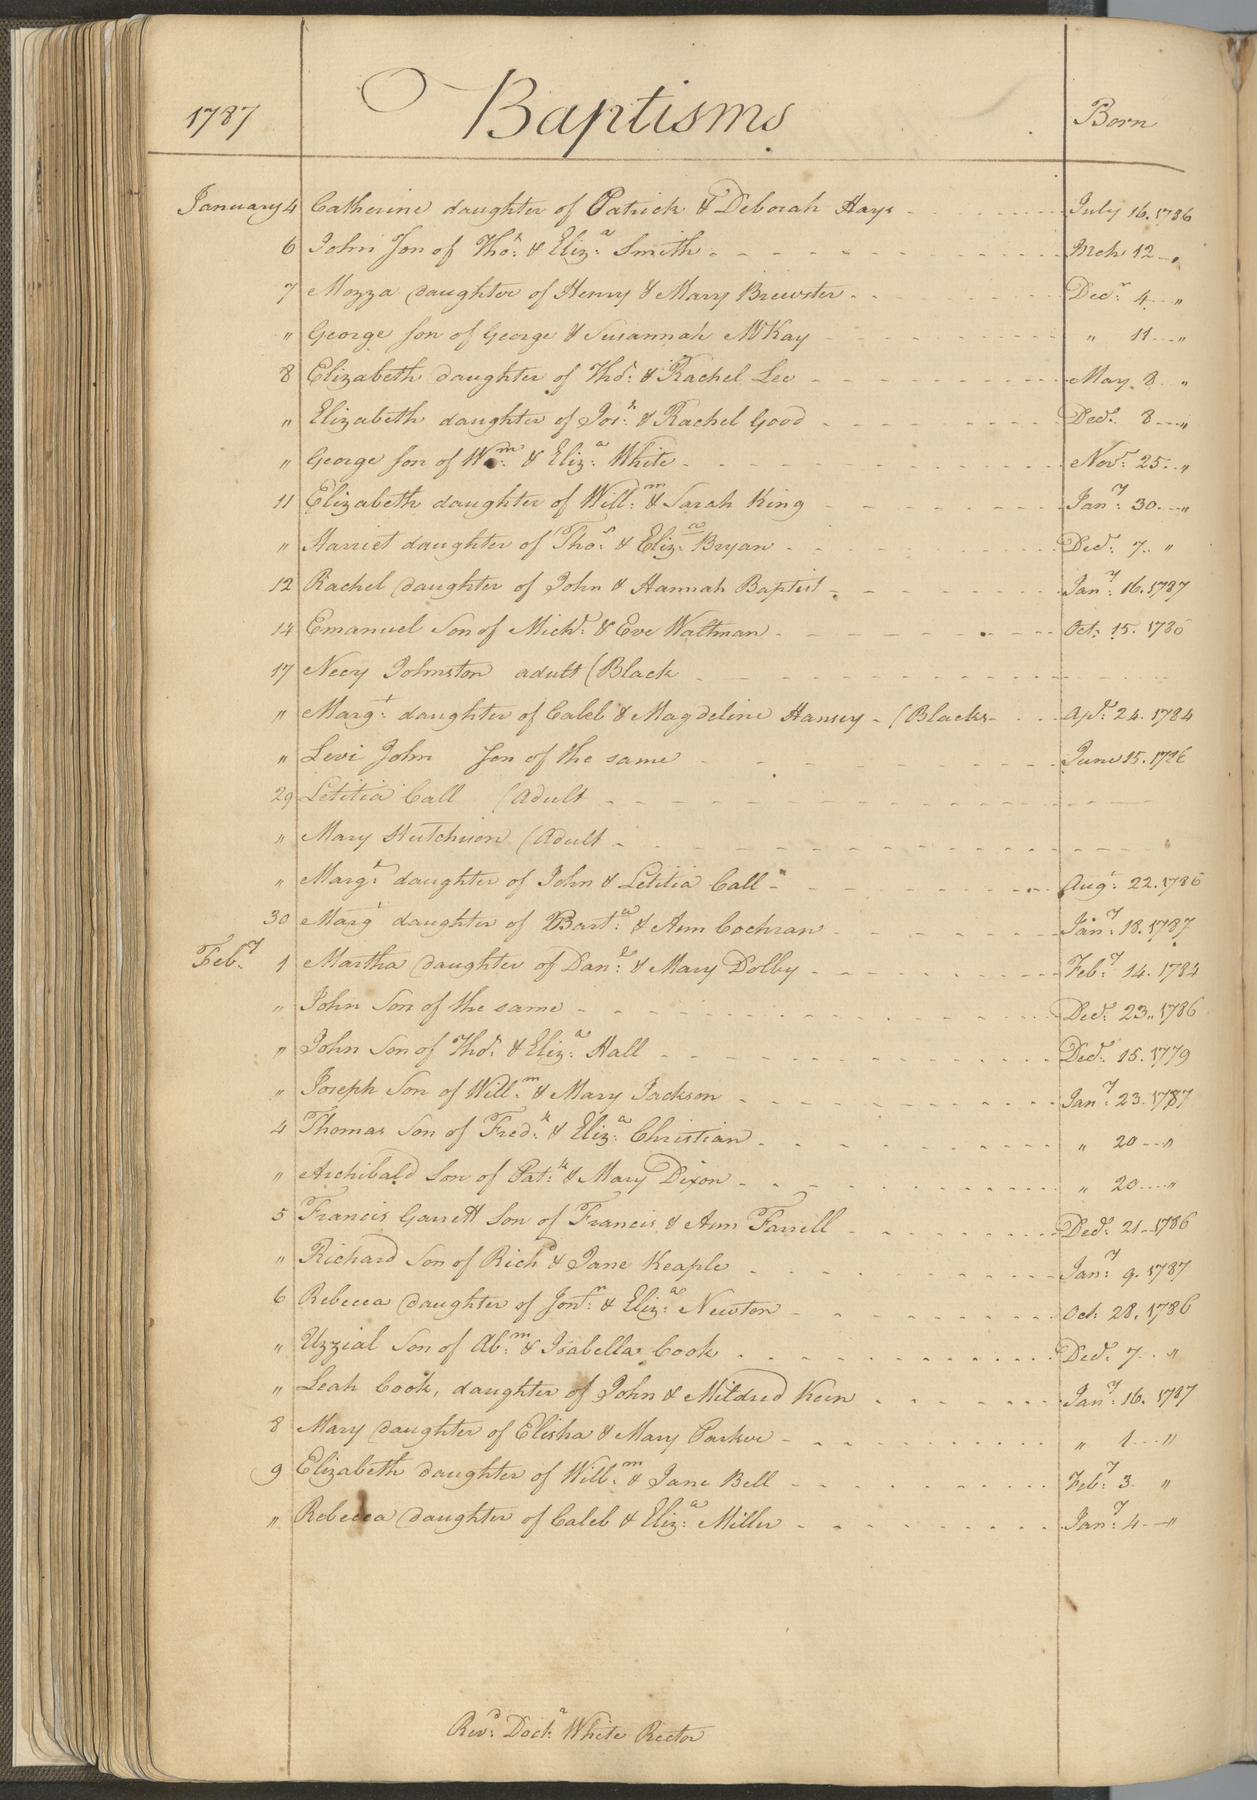 1787 Baptisms Born
January 4 Catherine daughter of Patrick & Deborah Hays July 16. 1786
6 John Son of Thos: & Eliza: Smith Mch 12 "
7 Mozza daughter of Henry & Mary Brewster Decr: 4 "
" George Son of George & Susannah McKay " 11 "
8 Elizabeth daughter of Thos: & Rachel Lee May 8 "
" Elizabeth daughter of Josh: & Rachel Good Decr: 8 "
" George Son of Wm: & Eliza: White Novr: 25. "
11 Elizabeth daughter of Willm: & Sarah King Jany: 30. "
" Harriet daughter of Thos: & Eliza: Bryan Decr: 7. "
12 Rachel daughter of John & Hannah Baptist Jany: 16. 1787
14 Emanuel Son of Michl: & Eve Waltman Oct: 15. 1786
17 Necy Johnston adult (Black
" Margt: daughter of Caleb & Magdeline Hansey - (Blacks Apl: 24. 1784
" Levi John Son of the same June 15. 1786
29 Letitia Call (Adult
" Mary Hutchison (Adult
" Margt: daughter of John & Letitia Call Augt: 22. 1786
30 Margt daughter of Barta: & Ann Cochran Jany: 18. 1787
Feby: 1 Martha daughter of Danl: & Mary Dolby Feby: 14. 1784
" John Son of the same Decr: 23. 1786
" John Son of Thos: & Eliza: Hall Decr: 15. 1779
" Joseph Son of Willm: & Mary Jackson Jany: 23. 1787
4 Thomas Son of Fredk: & Eliza: Christian " 20 "
" Archibald Son of Patk: & Mary Dixon " 20 "
5 Francis Garrett Son of Francis & Ann Farrell Decr: 21. 1786
" Richard Son of Richd & Jane Keaple Jany: 9. 1787
6 Rebecca daughter of Jonn: & Eliza: Newton Oct: 28. 1786
" Uzzial Son of Abm: & Isabella Cook Decr: 7. "
" Leah Cook, daughter of John & Mildred Keen Jany: 16. 1787
8 Mary daughter of Elisha & Mary Parker " 1 "
9 Elizabeth daughter of Willm: & Jane Bell Feby: 3. "
" Rebecca daughter of Caleb & Eliza: Miller Jany: 4 "
Revd: Doctr: White Rector